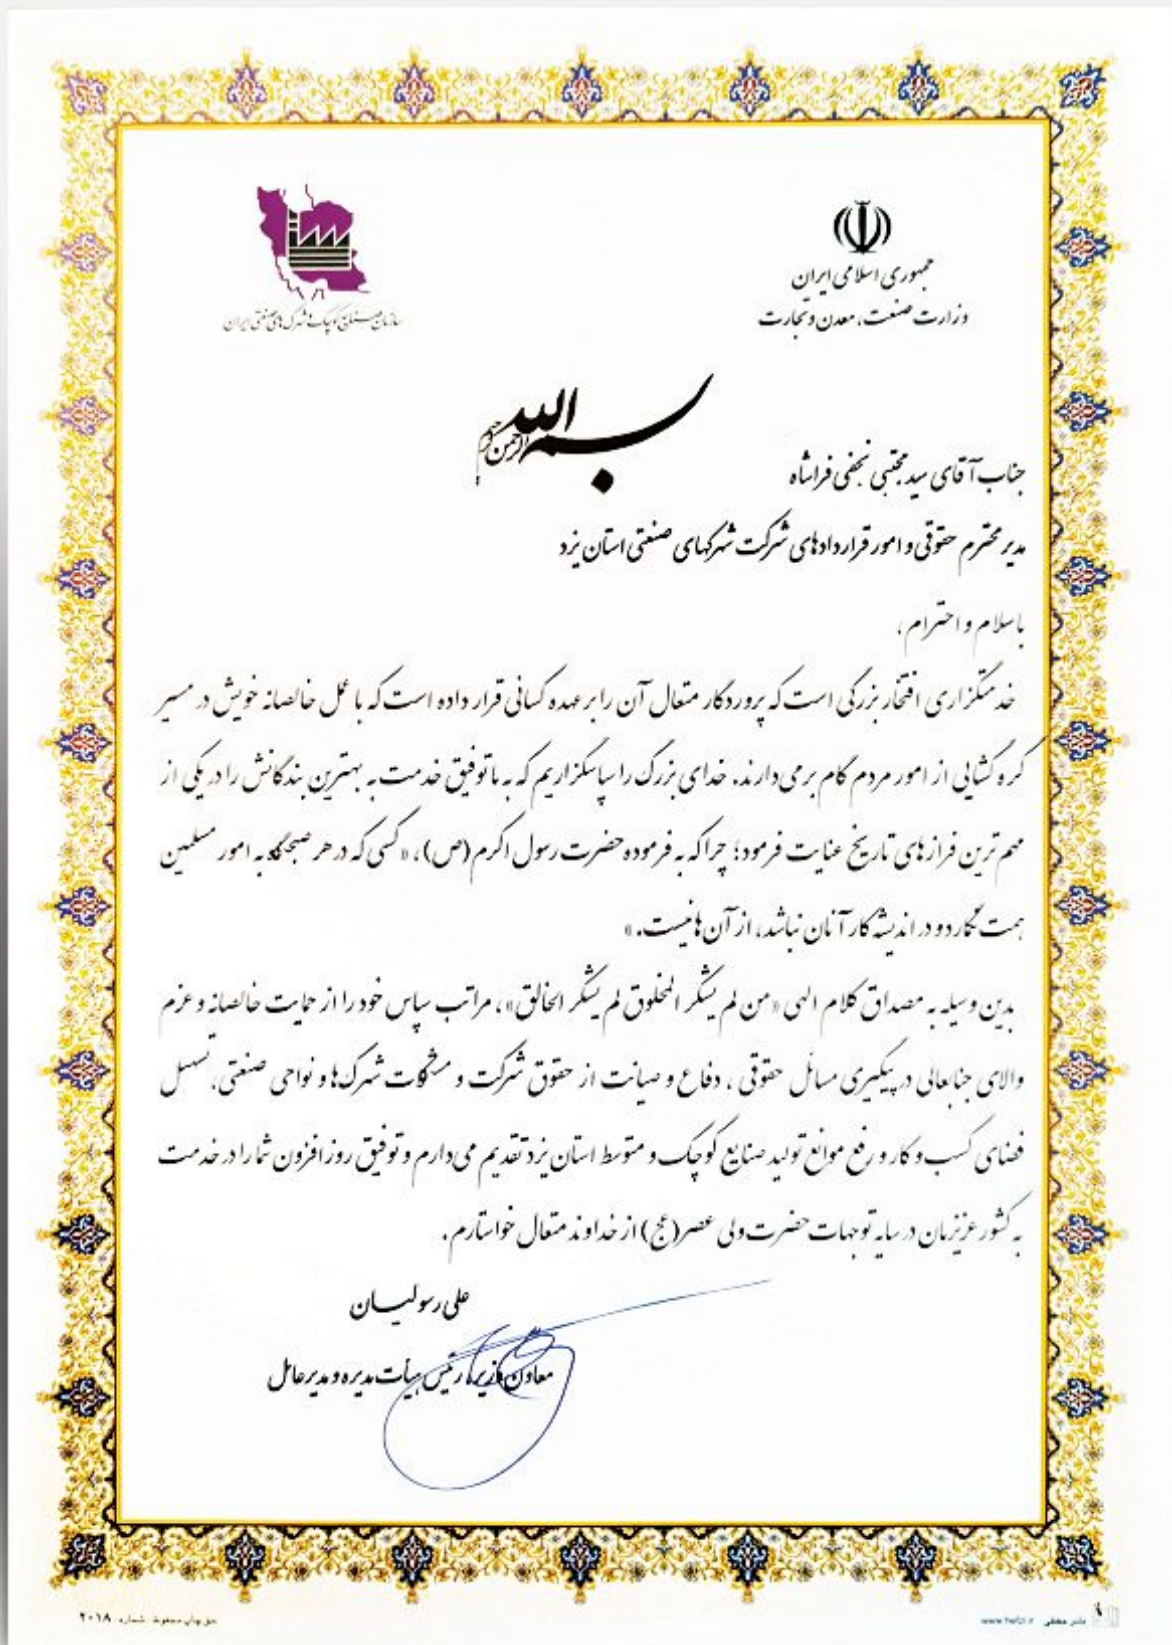 جمهوری اسلامی ایران
وزارت صنعت، معدن و تجارت
سازمان صنایع کوچک و شهرک‌های صنعتی ایران
بسم الله الرحمن الرحیم
جناب آقای سید مجتبی نجفی فراشاه
مدیر محترم حقوقی و امور قراردادهای شرکت شهرکهای صنعتی استان یزد
باسلام و احترام ،
خدمتگزاری افتخار بزرگی است که پروردگار متعال آن را بر عهده کسانی قرار داده است که با عمل خالصانه خویش در مسیر
گره گشایی از امور مردم گام برمی‌دارند. خدای بزرگ را سپاسگزاریم که به ما توفیق خدمت به بهترین بندگانش را در یکی از
مهم ترین فرازهای تاریخ عنایت فرمود؛ چراکه به فرموده حضرت رسول اکرم (ص)، «کسی که در هر صبحگاه به امور مسلمین
همت نگمارد و در اندیشه کار آنان نباشد، از آن‌ها نیست.»
بدین وسیله به مصداق کلام الهی «من لم یشکر المخلوق لم یشکر الخالق»، مراتب سپاس خود را از حمایت خالصانه و عزم
والای جنابعالی در پیگیری مسائل حقوقی ، دفاع و صیانت از حقوق شرکت و مشکلات شهرک‌ها و نواحی صنعتی، تسهیل
فضای کسب و کار و رفع موانع تولید صنایع کوچک و متوسط استان یزد تقدیم می‌دارم و توفیق روزافزون شما را در خدمت
به کشور عزیزمان در سایه توجهات حضرت ولی عصر(عج) از خداوند متعال خواستارم.
علی رسولیان
معاون وزیر، رئیس هیأت مدیره و مدیرعامل
حق چاپ محفوظ شماره ۲۰۱۸